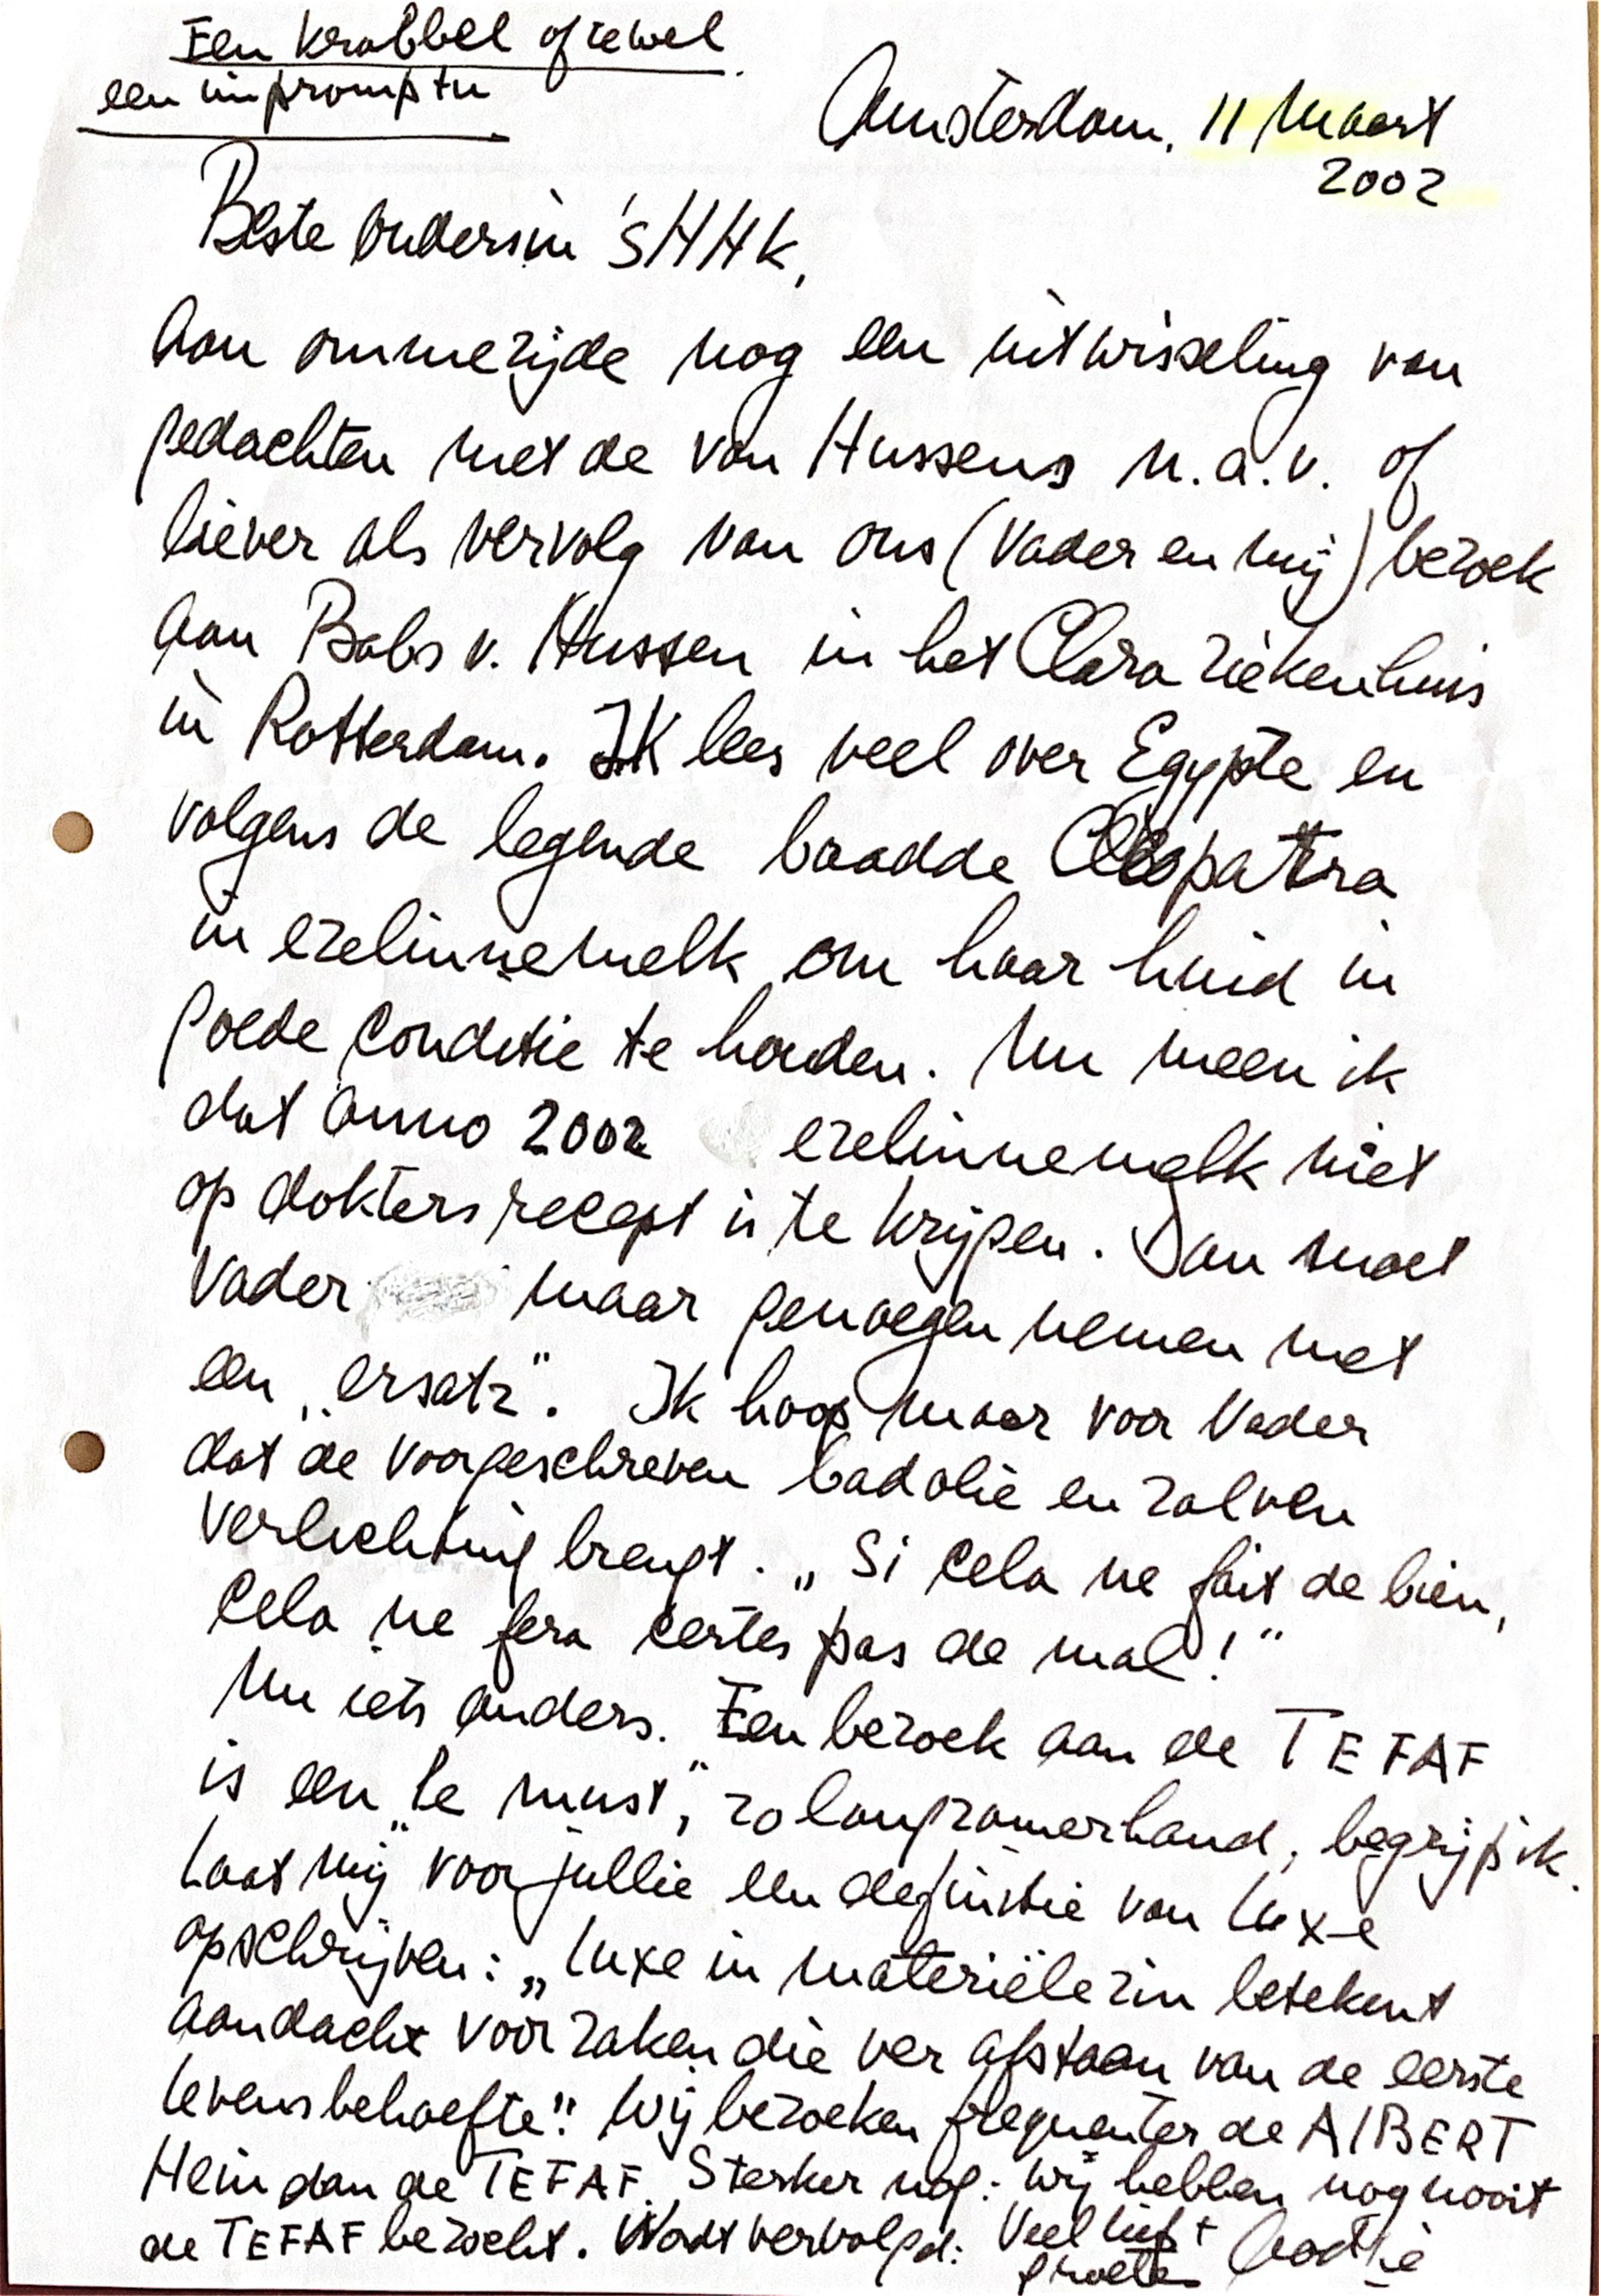 Een krabbel oftewel
een impromptu
Amsterdam, 11 Maart
2002
Beste ouders in 'sHHk,
Aan ommezijde nog een uitwisseling van
gedachten met de van Hussens n.a.v. of
liever als vervolg van ons (Vader en mij) bezoek
aan Babs v. Hussen in het Clara ziekenhuis
in Rotterdam. Ik lees veel over Egypte en
volgens de legende baadde Cleopattra
in ezelinnemelk om haar huid in
goede conditie te houden. Nu meen ik
dat anno 2002 ezelinnemelk niet
op doktersrecept is te krijgen. Dan moet
Vader maar genoegen nemen met
een „ersatz". Ik hoop maar voor Vader
dat de voorgeschreven badolie en zalven
verlichting brengt. „Si cela ne fait de bien,
cela ne fera certes pas de mal!"
Nu iets anders. Een bezoek aan de TEFAF
is een „le must", zo langzamerhand, begrijp ik.
Laat mij voor jullie een definitie van luxe
opschrijven: „luxe in materiële zin betekent
aandacht voor zaken die ver afstaan van de eerste
levensbehoefte". Wij bezoeken frequenter de AlBERT
Hein dan de TEFAF. Sterker nog: wij hebben nog nooit
de TEFAF bezocht. Wordt vervolgd: Veel liefs +
groeten